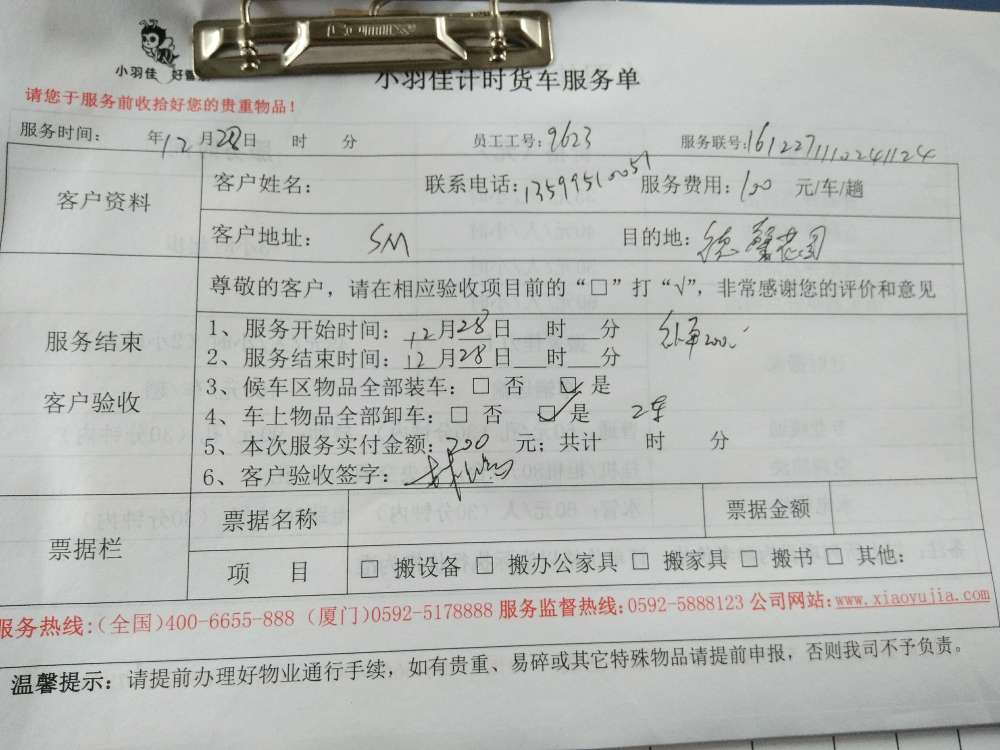 Comix
小羽佳 好
小羽佳计时货车服务单
请您于服务前收拾好您的贵重物品！
服务时间： 年12月28日 时 分 员工工号：9623 服务联号：1612271110241124
客户资料
客户姓名： 联系电话：13599510057 服务费用：100 元/车/趟
客户地址： SM 目的地：德馨花园
服务结束
客户验收
尊敬的客户，请在相应验收项目前的“□”打“√”，非常感谢您的评价和意见
1、服务开始时间：12月28日 时 分
2、服务结束时间：12月28日 时 分
3、候车区物品全部装车：□ 否 ☑ 是
4、车上物品全部卸车：□ 否 ☑ 是 2车
5、本次服务实付金额：200 元；共计 时 分
6、客户验收签字：
票据栏
票据名称 票据金额
项 目 □ 搬设备 □ 搬办公家具 □ 搬家具 □ 搬书 □ 其他：
服务热线：(全国)400-6655-888 (厦门)0592-5178888 服务监督热线：0592-5888123 公司网站：www.xiaoyujia.com
温馨提示：请提前办理好物业通行手续，如有贵重、易碎或其它特殊物品请提前申报，否则我司不予负责。